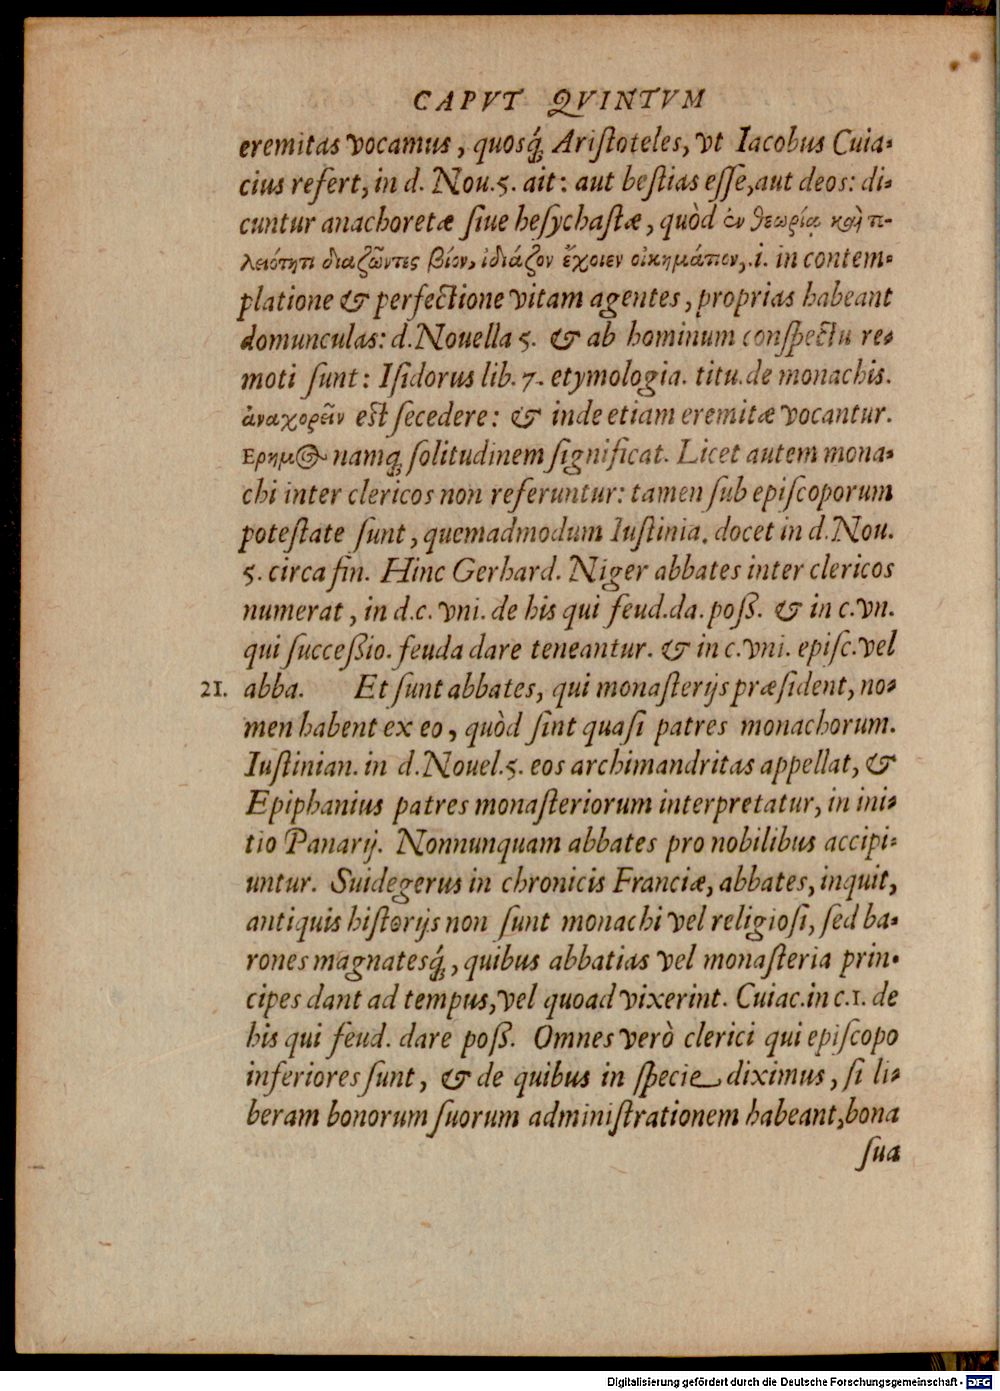 CAPVT QVINTVM
eremitas vocamus, quosq́; Aristoteles, vt Iacobus Cuia-
cius refert, in d. Nou. 5. ait: aut bestias esse, aut deos: di-
cuntur anachoretæ siue hesychastæ, quòd ἐν θεωρίᾳ καὶ π-
λειότητι διαζῶντες βίον, ἰδιάζον ἔχοιεν οἰκημάτιον, .i. in contem-
platione & perfectione vitam agentes, proprias habeant
domunculas: d. Nouella 5. & ab hominum conspectu re-
moti sunt: Isidorus lib. 7. etymologia. titu. de monachis.
ἀναχορεῖν est secedere: & inde etiam eremitæ vocantur.
Ερημος namq; solitudinem significat. Licet autem mona-
chi inter clericos non referuntur: tamen sub episcoporum
potestate sunt, quemadmodum Iustinia. docet in d. Nou.
5. circa fin. Hinc Gerhard. Niger abbates inter clericos
numerat, in d. c. vni. de his qui feud. da. poß. & in c. vn.
qui succeßio. feuda dare teneantur. & in c. vni. episc. vel
21. abba. Et sunt abbates, qui monasterijs præsident, no-
men habent ex eo, quòd sint quasi patres monachorum.
Iustinian. in d. Nouel. 5. eos archimandritas appellat, &
Epiphanius patres monasteriorum interpretatur, in ini-
tio Panarij. Nonnunquam abbates pro nobilibus accipi-
untur. Suidegerus in chronicis Franciæ, abbates, inquit,
antiquis historijs non sunt monachi vel religiosi, sed ba-
rones magnatesq́;, quibus abbatias vel monasteria prin-
cipes dant ad tempus, vel quoad vixerint. Cuiac. in c. 1. de
his qui feud. dare poß. Omnes verò clerici qui episcopo
inferiores sunt, & de quibus in specie diximus, si li-
beram bonorum suorum administrationem habeant, bona
sua
Digitalisierung gefördert durch die Deutsche Forschungsgemeinschaft - DFG